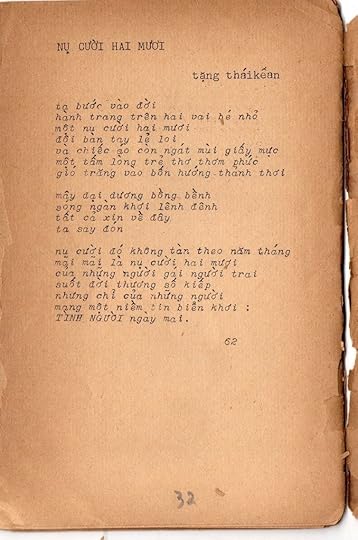 NỤ CƯỜI HAI MƯƠI
tặng tháikêan
ta bước vào đời
hành trang trên hai vai bé nhỏ
một nụ cười hai mươi
đôi bàn tay lẻ loi
và chiếc áo còn ngát mùi giấy mực
một tấm lòng trẻ thơ thơm phức
gió trăng vào bốn hướng thảnh thơi
mây đại dương bồng bềnh
sóng ngàn khơi lênh đênh
tất cả xin về đây
ta say đón
nụ cười đó không tàn theo năm tháng
mãi mãi là nụ cười hai mươi
của những người gái người trai
suốt đời thương số kiếp
những chỉ của những người
mang một niềm tin biển khơi :
TÌNH NGƯỜI ngày mai.
62
32